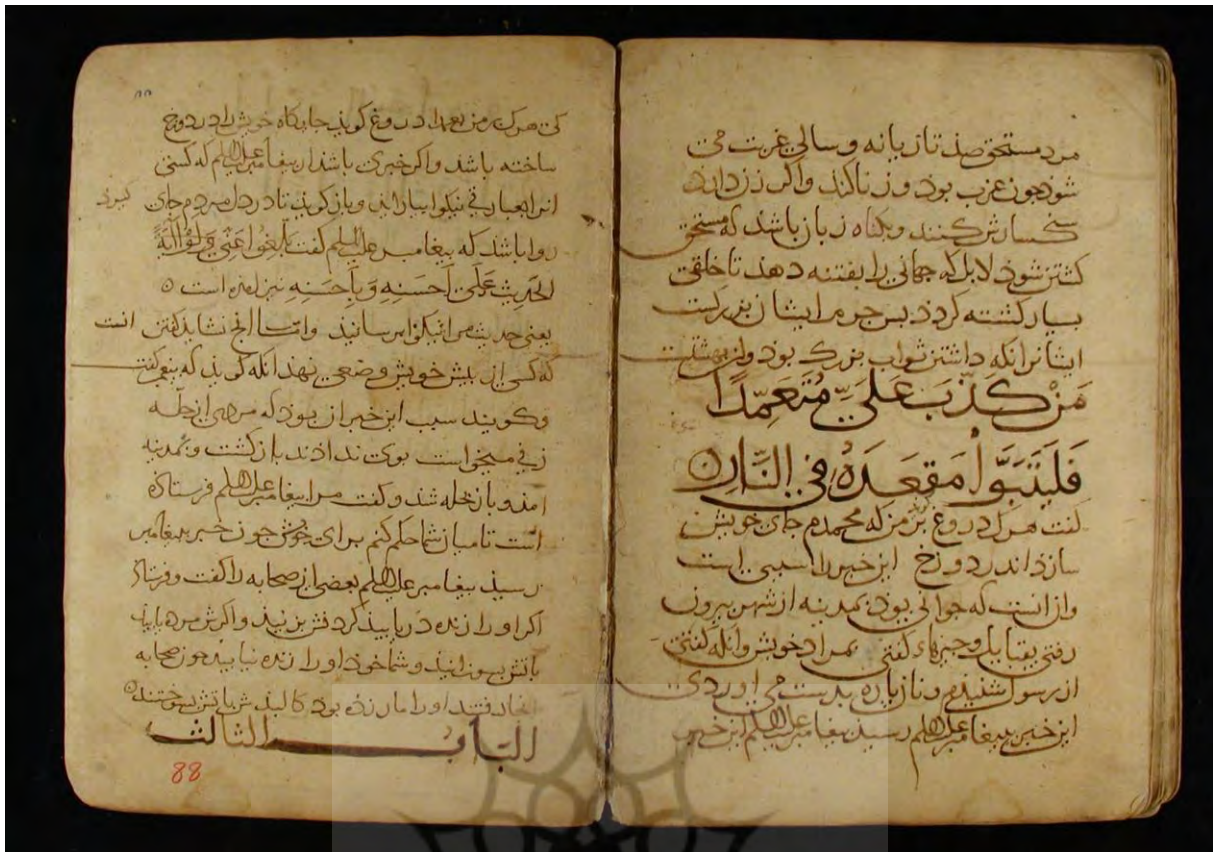 مرد مستحق صذ تازیانه و سالی غربت می
شود چون عزب بود و زنا کند واگر زن دارد
سنگسارش کنند و بگناه زبان باشد که مستحق
کشتن شوذ لابل که جهانی را بفتنه دهذ تا خلقی
بسیار کشته گردذ بس جرم ایشان بزرگست
ایشانرا نگه داشتن ثواب بزرگ بوذ
مَنْ كَذَبَ عَلَيَّ مُتَعَمِّدًا
فَلْيَتَبَوَّأْ مَقْعَدَهُ فِي النَّارِ
گفت هرک دروغ بر من که محمدم جای خویش
سازد اندر دوزخ این خبر را سببی است
وان انست که جوانی بوذ بمدینه از شهر بیرون
رفتی بقبایل و چیزهاء گفتی بمراد خویش وانگه گفتی
از رسول شنیدم و نان باره بدست می اوردی
این خبر ببیغامبر علیه السلم رسیذ بیغامبر علیه السلم این خبر
کی هرک بر من بعمدا دروغ گویذ جایگاه خویش را در دوزخ
ساخته باشد واگر خبری باشذ از بیغامبر علیه السلم که کسی
انرا بعبارتی نیکوا بیاراید و باز گویذ تا در دل مردم جای گیرد
روا باشد که بیغامبر علیه السلم گفت بَلِّغُوا عَنِّي وَلَوْ آيَةً
الحدیث علی احسنه و باحسنه نیز امده است ه
یعنی حدیث مرا نیکوا برسانید واما انچ نشاید گفتن انست
که کسی از بیش خویش وضعی نهذ انگه گویذ که بیغمبر گفت
و گویند سبب این خبر ان بوذ که مردی از حله
زنی میخواست بوی ندادند باز گشت و بمدینه
امذ و باز حله شذ و گفت مرا بیغامبر علیه السلم فرستاده
است تا میان شما حکم کنم برای خویش چون خبر ببیغامبر
رسیذ بیغامبر علیه السلم بعضی از صحابه را گفت و فرستاد
اگر او را زنده دریابیذ گردنش بزنیذ واگرش مرده یابیذ
باتش بسوزانیذ و شما خوذ او را زنده نیابید چون صحابه
انجا رفتند او را مار زده بوذ کالبذش باتش بسوختند ه
الباب الثالث
88